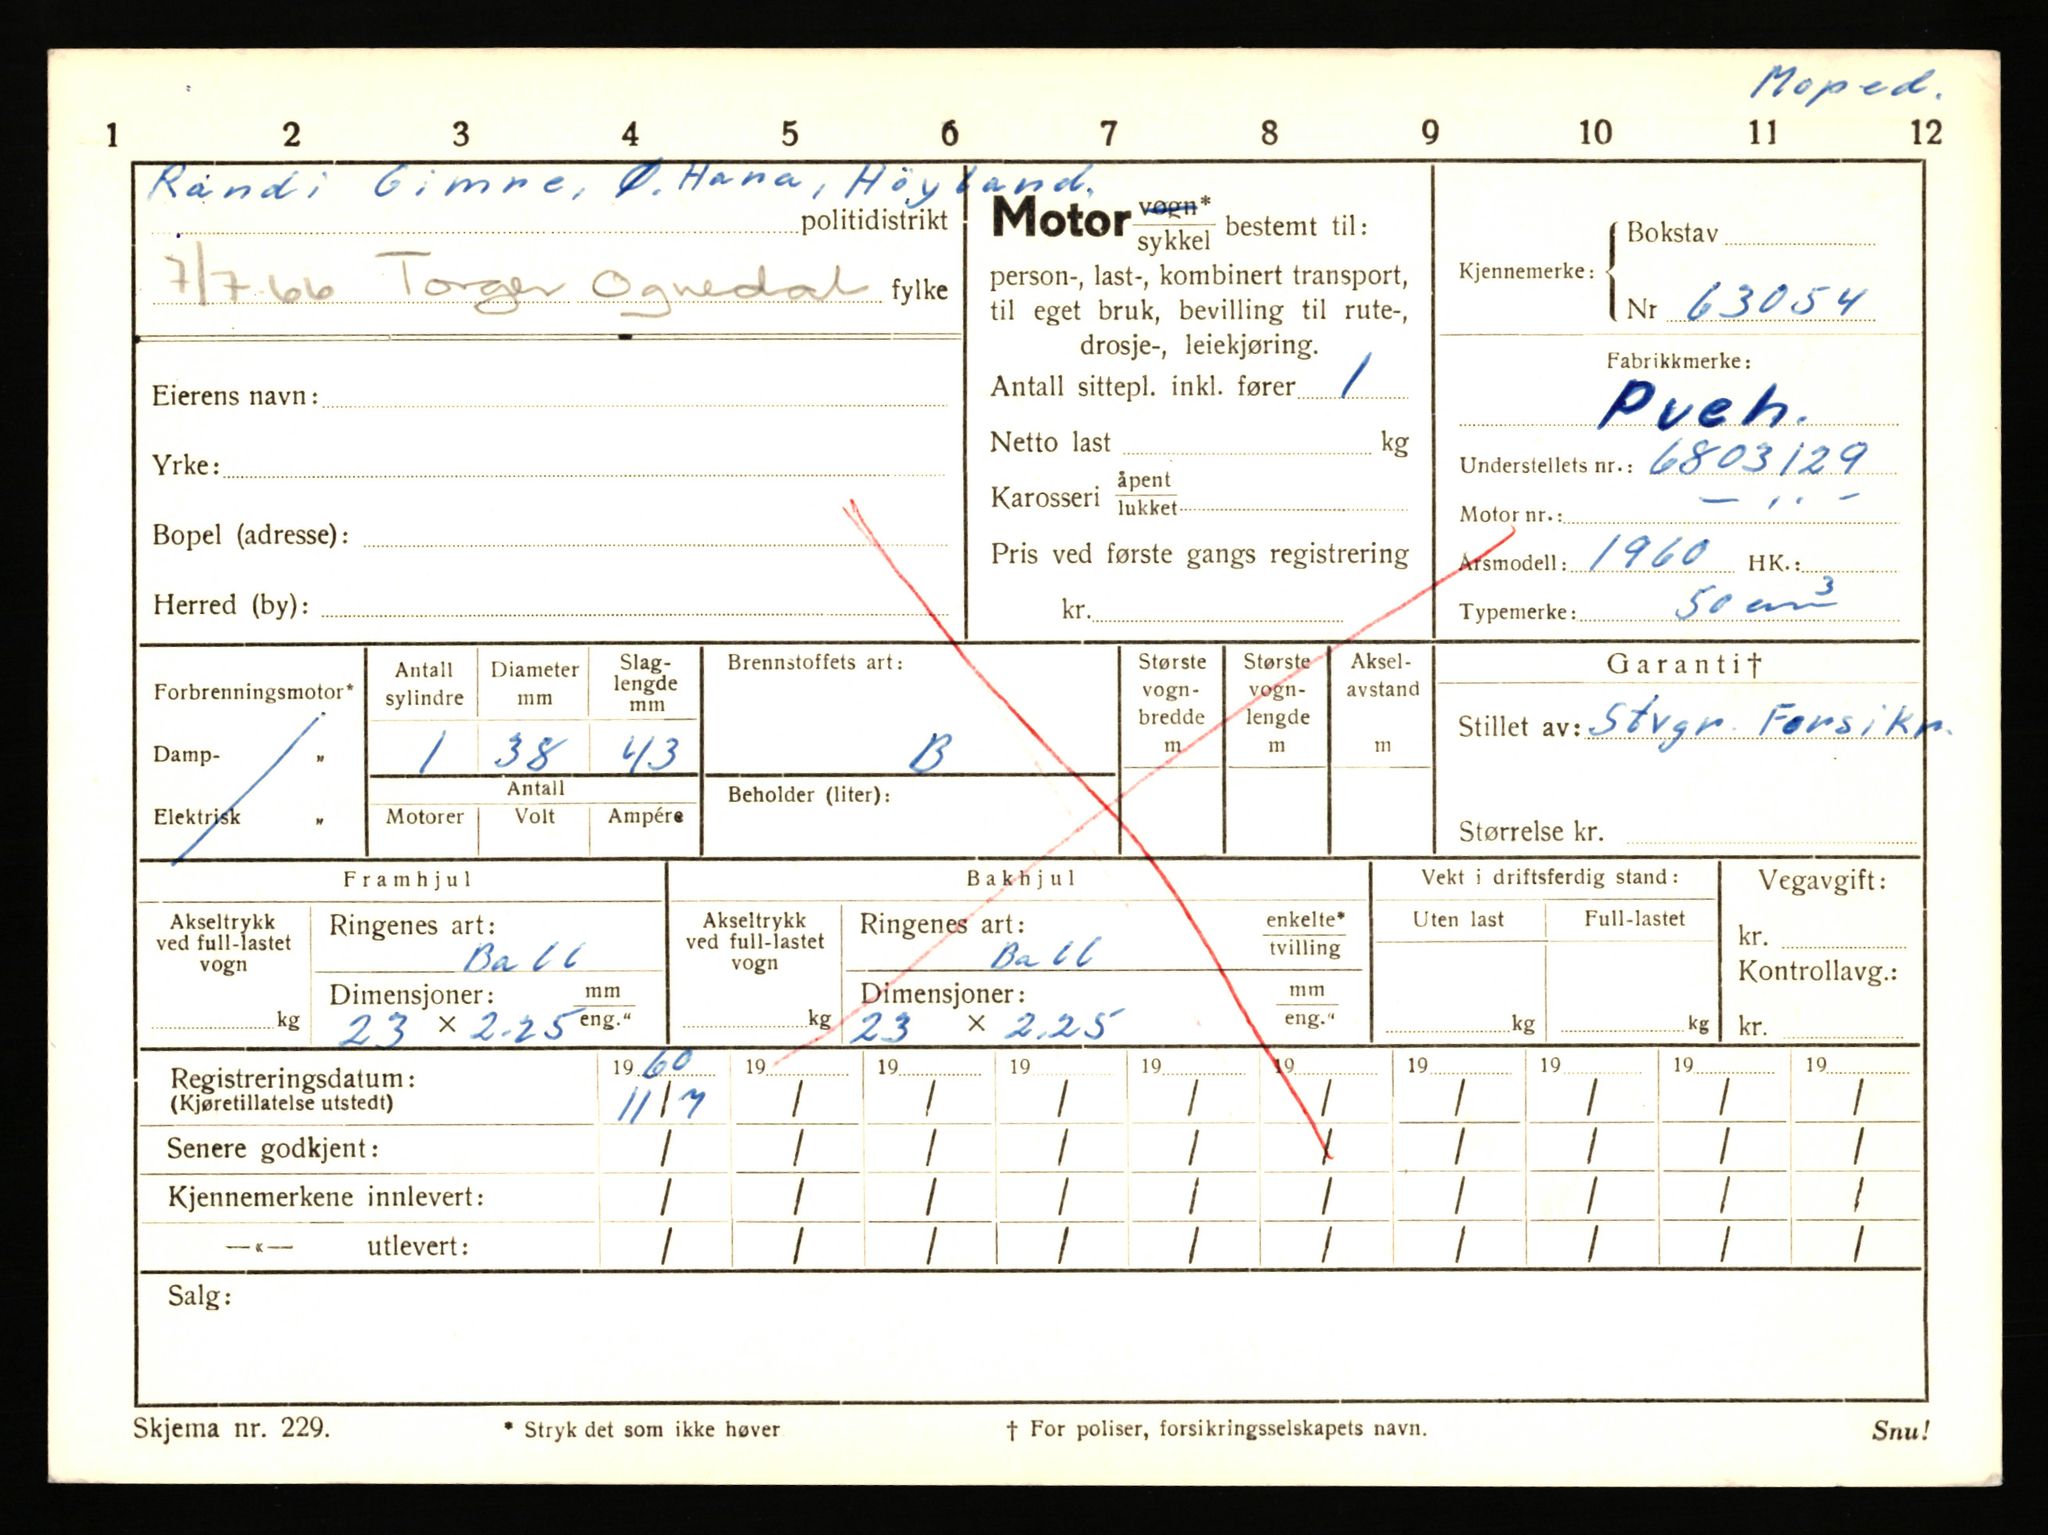 Moped.
1 2 3 4 5 6 7 8 9 10 11 12
Randi Gimre, Ø. Hana, Höyland.
politidistrikt
7/7-66 Torger Ognedal fylke
Eierens navn:
Yrke:
Bopel (adresse):
Herred (by):
Motor vogn* sykkel bestemt til:
person-, last-, kombinert transport,
til eget bruk, bevilling til rute-,
drosje-, leiekjøring.
Antall sittepl. inkl. fører 1
Netto last kg
Karosseri åpent lukket
Pris ved første gangs registrering
kr.
Kjennemerke: Bokstav
Nr 63054
Fabrikkmerke:
Pveh.
Understellets nr.: 6803129
Motor nr.: — ,, —
Årsmodell: 1960 HK.:
Typemerke: 50 cm3
Forbrenningsmotor*
Damp- „
Elektrisk „
Antall sylindre
Diameter mm
Slag-lengde mm
1 38 43
Antall
Motorer Volt Ampére
Brennstoffets art:
B
Beholder (liter):
Største vogn-bredde m
Største vogn-lengde m
Aksel-avstand m
Garanti†
Stillet av: Stvgr. Forsikr.
Størrelse kr.
Framhjul
Akseltrykk ved full-lastet vogn
kg
Ringenes art:
Ball
Dimensjoner: mm eng."
23 × 2.25
Bakhjul
Akseltrykk ved full-lastet vogn
kg
Ringenes art: enkelte* tvilling
Ball
Dimensjoner: mm eng."
23 × 2.25
Vekt i driftsferdig stand:
Uten last Full-lastet
kg kg
Vegavgift:
kr.
Kontrollavg.:
kr.
Registreringsdatum: 19 60 19 19 19 19 19 19 19 19 19
(Kjøretillatelse utstedt) 11/7 / / / / / / / / /
Senere godkjent: / / / / / / / / / /
Kjennemerkene innlevert: / / / / / / / / / /
—«— utlevert: / / / / / / / / / /
Salg:
Skjema nr. 229. * Stryk det som ikke høver † For poliser, forsikringsselskapets navn. Snu!